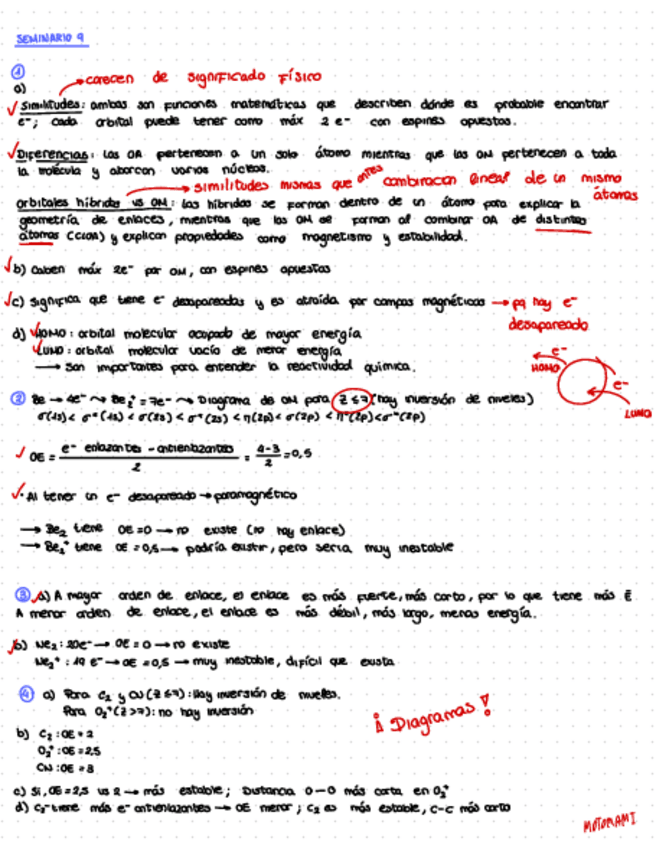 SEMINARIO 9
①
a)
carecen de significado físico
Similitudes: ambas son funciones matemáticas que describen dónde es probable encontrar
e⁻; cada orbital puede tener como máx 2 e⁻ con espines opuestos.
Diferencias: las OA pertenecen a un solo átomo mientras que las OM pertenecen a toda
la molécula y abarcan varios núcleos.
similitudes mismas que antes combinacion lineal de un mismo
átomos
orbitales híbridos vs OM: las híbridas se forman dentro de un átomo para explicar la
geometría de enlaces, mientras que las OM se forman al combinar OA de distintos
átomos (CLOA) y explican propiedades como magnetismo y estabilidad.
b) Caben máx 2e⁻ por OM, con espines opuestos
c) Significa que tiene e⁻ desapareados y es atraída por campos magnéticos → pq hay e⁻
desapareado
d) HOMO: orbital molecular ocupado de mayor energía
LUMO: orbital molecular vacío de menor energía
→ Son importantes para entender la reactividad química.
e⁻
HOMO
e⁻
LUMO
② Be → 4e⁻ ⇝ Be₂⁺ = 7e⁻ ⇝ Diagrama de OM para Z ≤ 7 (hay inversión de niveles)
σ(1s) < σ*(1s) < σ(2s) < σ*(2s) < π(2p) < σ(2p) < π*(2p) < σ*(2p)
OE = e⁻ enlazantes - antienlazantes / 2 = 4-3 / 2 = 0,5
· Al tener un e⁻ desapareado → paramagnético
→ Be₂ tiene OE = 0 → no existe (no hay enlace)
→ Be₂⁺ tiene OE = 0,5 → podría existir, pero sería muy inestable
③ a) A mayor orden de enlace, el enlace es más fuerte, más corto, por lo que tiene más E
A menor orden de enlace, el enlace es más débil, más largo, menos energía.
b) Ne₂: 20e⁻ → OE = 0 → no existe
Ne₂⁺: 19 e⁻ → OE = 0,5 → muy inestable, difícil que exista
④ a) Para C₂ y CN (Z ≤ 7): Hay inversión de niveles.
Para O₂⁺ (Z > 7): no hay inversión
¡Diagramas!
b) C₂: OE = 2
O₂⁺: OE = 2,5
CN: OE = 3
c) Sí, OE = 2,5 vs 2 → más estable; Distancia O-O más corta en O₂⁺
d) C₂⁻ tiene más e⁻ antienlazantes → OE menor; C₂ es más estable, C-C más corto
MOTORAMI